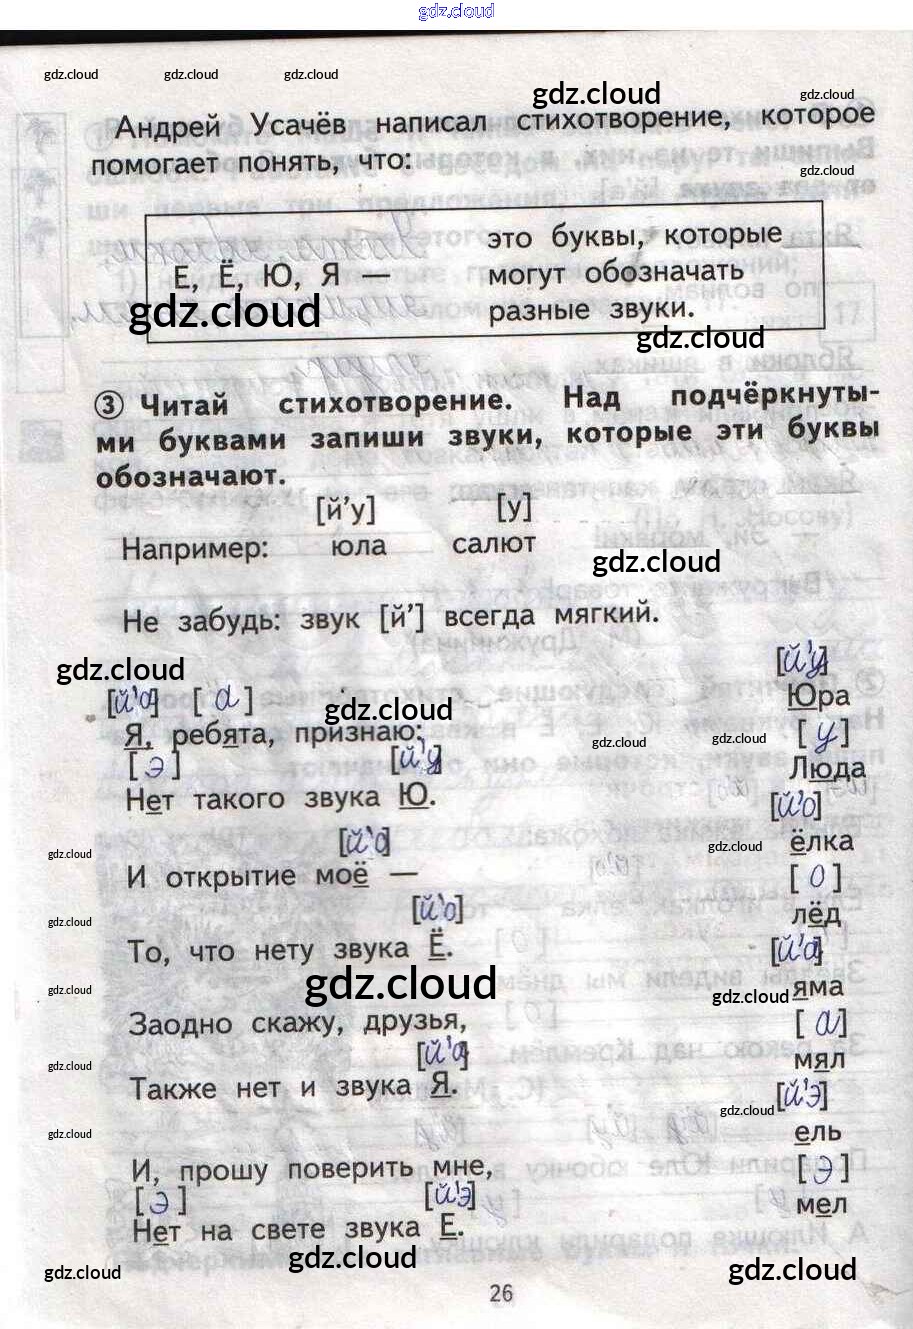 gdz.cloud
gdz.cloud gdz.cloud gdz.cloud
gdz.cloud gdz.cloud
Андрей Усачёв написал стихотворение, которое
помогает понять, что:
gdz.cloud
это буквы, которые
Е, Ё, Ю, Я — могут обозначать
разные звуки.
gdz.cloud
gdz.cloud
③ Читай стихотворение. Над подчёркнуты-
ми буквами запиши звуки, которые эти буквы
обозначают.
[й’у] [у]
Например: юла салют
gdz.cloud
Не забудь: звук [й’] всегда мягкий.
gdz.cloud
[й’у]
[й’а] [а] Юра
gdz.cloud
Я, ребята, признаю: [у]
gdz.cloud gdz.cloud
[э] [й’у] Люда
Нет такого звука Ю. [й’о]
[й’о] ёлка
gdz.cloud gdz.cloud
И открытие моё — [о]
[й’о] лёд
gdz.cloud
То, что нету звука Ё. [й’а]
gdz.cloud
gdz.cloud gdz.cloud
яма
Заодно скажу, друзья, [а]
[й’а] мял
gdz.cloud
Также нет и звука Я. [й’э]
gdz.cloud
gdz.cloud
ель
И, прошу поверить мне, [э]
[э] [й’э] мел
Нет на свете звука Е.
gdz.cloud gdz.cloud gdz.cloud
26